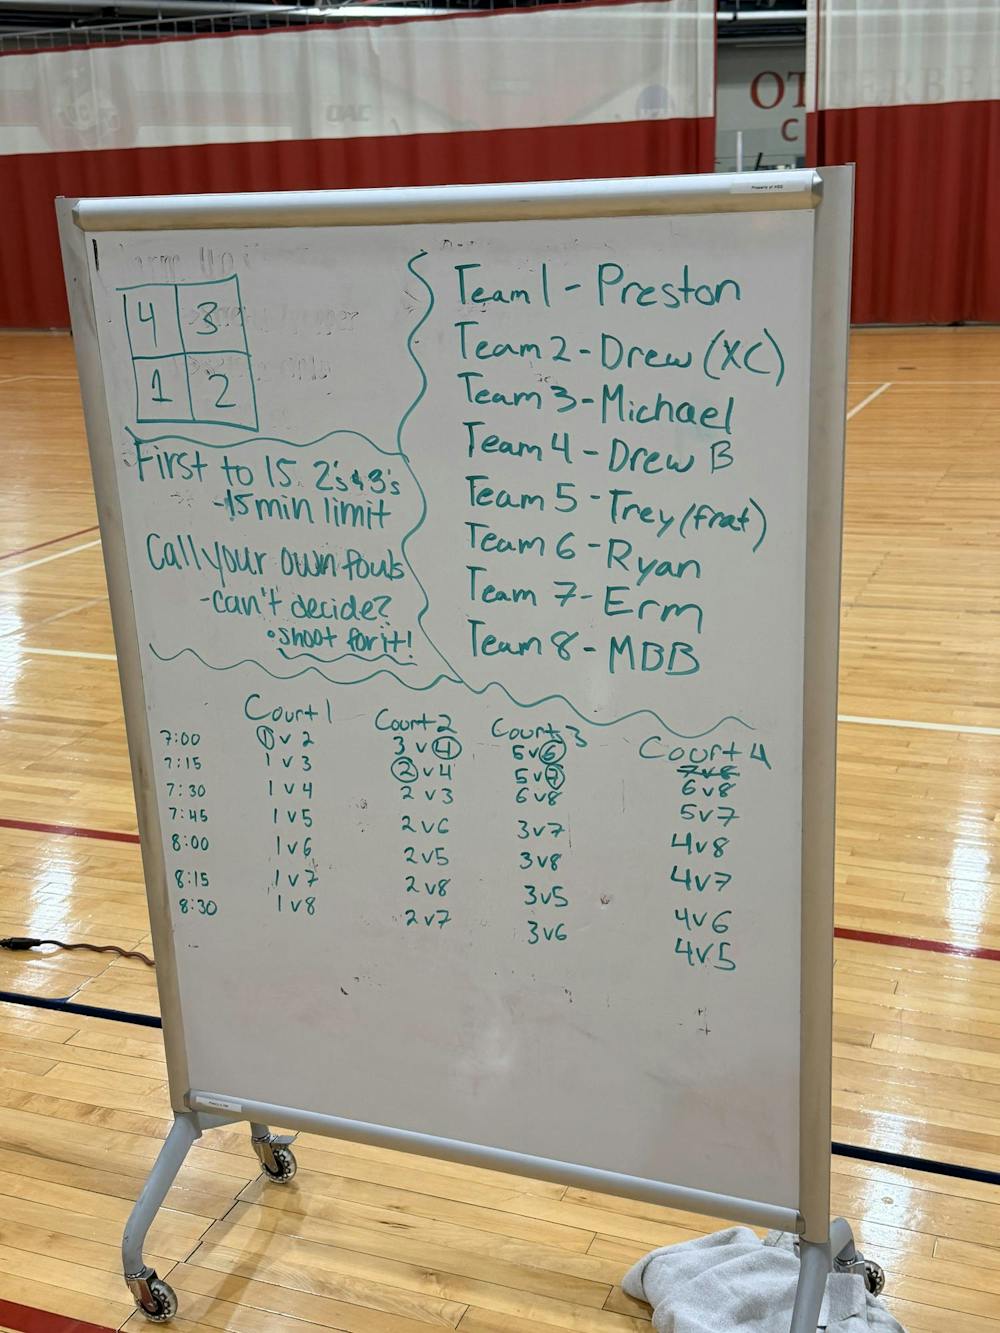 OAC
OTTERBE
C
Property of HSS
4 3
1 2
First to 15. 2's & 3's
-15 min limit
Call your own fouls
-can't decide?
•shoot for it!
Team 1 - Preston
Team 2 - Drew (XC)
Team 3 - Michael
Team 4 - Drew B
Team 5 - Trey (frat)
Team 6 - Ryan
Team 7 - Erm
Team 8 - MBB
Court 1 Court 2 Court 3 Court 4
7:00 1 v 2 3 v 4 5 v 6 7v8
7:15 1 v 3 2 v 4 5 v 7 6v8
7:30 1 v 4 2 v 3 6 v 8 5v7
7:45 1 v 5 2 v 6 3 v 7 4v8
8:00 1 v 6 2 v 5 3 v 8 4v7
8:15 1 v 7 2 v 8 3 v 5 4v6
8:30 1 v 8 2 v 7 3 v 6 4v5